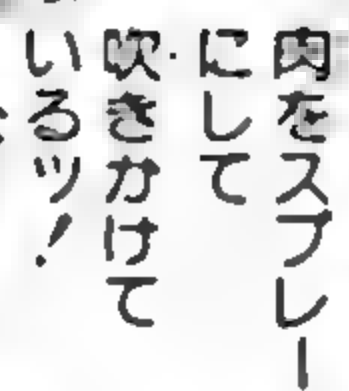 肉をスプレー
にして
吹きかけて
いるッ！